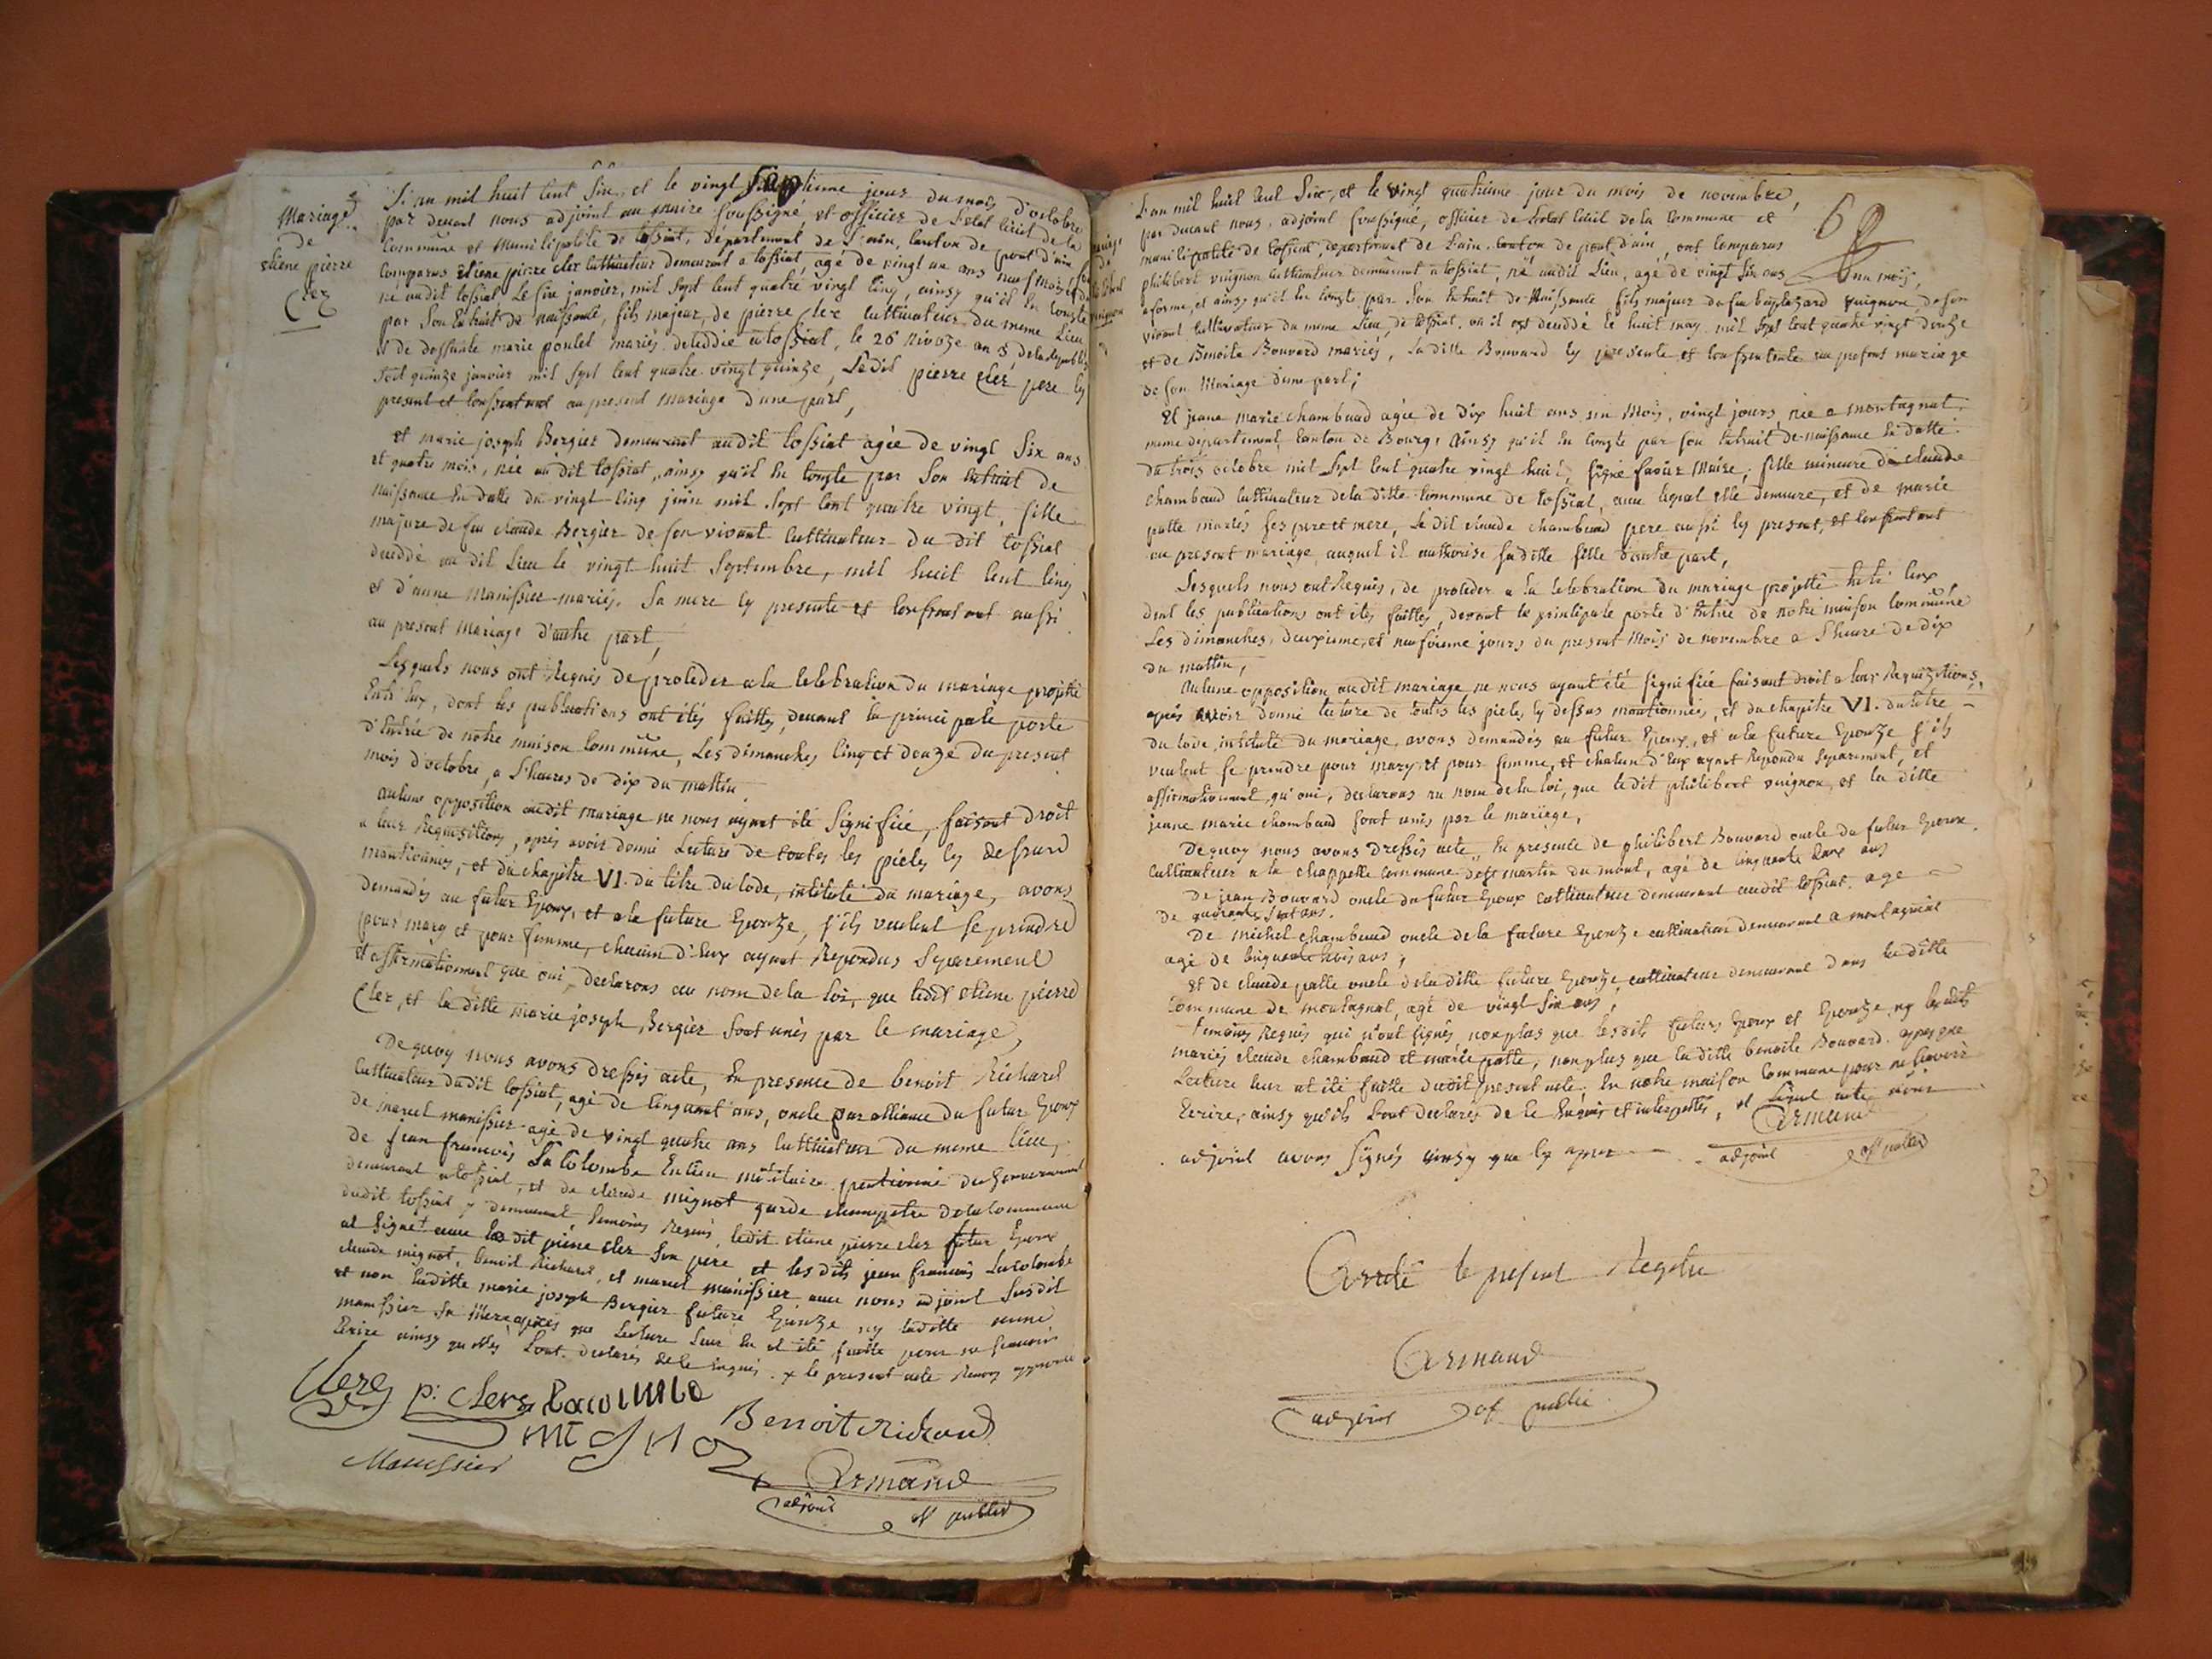 Mariage
de
etiene pierre
Clez
L'an mil huit cent Six, et le vingt Septieme jour du mois d'octobre
par devant nous adjoint au maire soussigné et officier de l'etat civil de la
Commune et municipalité de tossiat, département de l'ain, canton de pont d'ain
comparus Etiene pierre clez cultivateur demeurant a tossiat, agé de vingt un ans neuf mois
né audit tossiat le six janvier, mil sept cent quatre vingt cinq, ainsy qu'il en conste
par son Extrait de naissance, fils majeur, de pierre clez cultivateur du meme Lieu
et de deffunte marie poulet mariés decedée a tossiat, le 26 nivoze an 3 de la Republi
soit quinze janvier mil sept cent quatre vingt quinze, Le dit pierre clez pere cy
present et consentant au present mariage d'une part,
et marie joseph Bergier demeurant audit tossiat agée de vingt six ans
et quatre mois, née au dit tossiat, ainsy qu'il en conste par son Extrait de
naissance en datte du vingt cinq juin mil sept cent quatre vingt, fille
majure de feu claude Bergier de son vivant cultivateur du dit tossiat
deceddé au dit Lieu le vingt huit Septembre, mil huit cent cinq
et d'anne Manissier mariés. sa mere cy presente et consentant aussi
au present Mariage d'autre part,
Lesquels nous ont Requis de proceder a la celebration du mariage projetté
Entr'eux, dont les publications ont étés faittes, devant la principale porte
d'Entrée de notre maison commune, Les dimanches cinq et douze du present
mois d'octobre, a l'heures de dix du mattin
aucune opposition audit mariage ne nous ayant été signifiée, faisant droit
a leur Requisitions, après avoir donné Lecture de toutes les pièces cy dessus
mantionnées, et du chapitre VI. du titre du code, intitulé du mariage, avons
demandés au futur Epoux, et a la future Epouze, s'ils veulent se prendre
pour mary et pour femme, chacun d'eux ayant Repondus Séparement
et affirmativement que oui, declarons au nom de la loi, que ledit etiene pierre
Clez, et la ditte marie joseph Bergier sont unis par le mariage,
De quoy nous avons dressés acte, En presence de benoit Richard
Cultivateur dudit tossiat, agé de cinquant ans, oncle par alliance du futur Epoux
de marcel manissier agé de vingt quatre ans cultivateur du meme lieu,
de jean francois La Colombe Encien militaire pentionné du gouvernement
demeurant a tossiat, et de claude mignot garde champetre de la commune
dudit tossiat y demeurant, temoins Requis, ledit etiene pierre clez futur Epoux
at signé avec le dit pierre clez son père et les dits jean francois Lacolombe
claude mignot, benoit Richard, et marcel manissier avec nous adjoint susdit
et non laditte marie joseph Bergier future Epouze ny laditte anne
manissier sa Mere après que Lecture leur en et été faitte pour ne scavoir
Ecrire ainsy qu'elles L'ont declarés de ce Enquis. x le present acte Renvoy approuvé
Clerz p: Clerz Lacolombe
mignoz Benoit Richard
Manissier
Armand
adjoint of public
L'an mil huit cent Six, et le vingt quatrieme jour du mois de novembre,
par devant nous, adjoint soussigné, officier de l'etat civil de la commune et
municipalité de tossiat, departement de l'ain, canton de pont d'ain, ont comparus
philibert vuignon cultivateur demeurant a tossiat, né audit Lieu, agé de vingt six ans un mois,
a forme, et ainsy qu'il en conste par son Extrait de Naissance fils majeur de feu vuignon, de son
vivant cultivateur du meme Lieu de tossiat, ou il est deceddé le huit may mil sept cent quatre vingt douze
et de Benoite Bouvard mariés, La ditte Bouvard cy presente et consentente au present mariage
de son Mariage d'une part;
Et jeane marie chambaud agée de Dix huit ans un Mois, vingt jours, née a montagnat
meme departement, canton de Bourg, Ainsy qu'il en conste par son Extrait de naissance en datte
du trois octobre mil sept cent quatre vingt huit, signé Maire; fille mineure de claude
chambaud cultivateur de la ditte commune de tossiat, avec lequel elle demeure, et de marie
patte mariés ses pere et mere, Le dit claude chambaud pere aussi cy present, et consentant
au present mariage auquel il authorise sa ditte fille d'autre part,
Lesquels nous ont Requis, de proceder a la celebration du mariage projetté Entr'eux
dont les publications ont étés faittes, devant la principale porte d'Entrée de notre maison commune
Les dimanches, deuxieme, et neufvieme jours du present Mois de novembre a l'heure de dix
du mattin,
Aucune opposition audit mariage ne nous ayant été signifiée faisant droit a leur Requizitions,
après avoir donné lecture de toutes les pieces cy dessus mantionnées, et du chapitre VI. du titre
du code, intitulé du mariage, avons demandés au futur Epoux, et a la future Epouze s'ils
veulent se prendre pour mary et pour femme, et chacun d'Eux ayant Repondu separement, et
affirmativement, qu'oui, declarons au nom de la loi, que ledit philibert vuignon, et la ditte
jeane marie chambaud sont unis par le mariage,
De quoy nous avons dressés acte, En presence de philibert Bouvard oncle du futur Epoux
Cultivateur a la chappelle commune de st martin du mont, agé de cinquante deux ans
De jean Bouvard oncle du futur Epoux cultivateur demeurant audit tossiat, age
de quarante sept ans.
De michel chambaud oncle de la future Epouze cultivateur demeurant a montagnat
agé de cinquante trois ans,
et de claude patte oncle de la ditte future Epouze, cultivateur demeurant dans la ditte
commune de montagnat, agé de vingt six ans,
temoins Requis qui n'ont signés, non plus que lesdits futurs Epoux et Epouze, ny lesdits
mariés claude chambaud et marie patte, non plus que la ditte benoite Bouvard, apres que
Lecture leur at été faitte dudit present acte, En notre maison commune pour ne scavoir
Ecrire, ainsy qu'ils L'ont declarés de ce Enquis et interpellés, et ledit acte nous
adjoint avons signés ainsy que cy apres
Armand
adjoint of public
Arreté le present Registre
Armand
adjoint of public